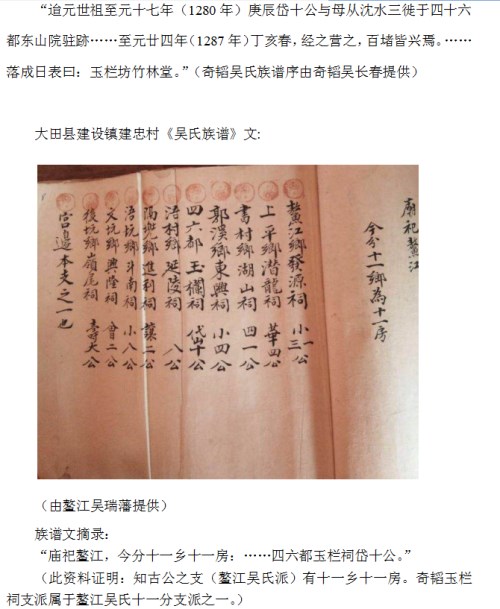 “迨元世祖至元十七年（1280 年）庚辰岱十公与母从沈水三徙于四十六
都东山院驻跡……至元廿四年（1287 年）丁亥春，经之营之，百堵皆兴焉。……
落成日表曰：玉栏坊竹林堂。”（奇韬吴氏族谱序由奇韬吴长春提供）
大田县建设镇建忠村《吴氏族谱》文:
廟祀鰲江
今分十一鄉為十一房
鰲江鄉發源祠 小一三公
上平鄉潛龍祠 華四公
書村鄉湖山祠 四一公
郭溪鄉東興祠 小四公
四六都玉欄祠 岱十公
浯村鄉延陵祠 八公
隔兜鄉進利祠 讓二公
浯坑鄉斗南祠 小八公
文坑鄉興隆祠 曾二公
後坑鄉嶺尾祠 壽大公
宫邊本支之一也
（由鳌江吴瑞藩提供）
族谱文摘录：
“庙祀鳌江，今分十一乡十一房：……四六都玉栏祠岱十公。”
（此资料证明：知古公之支（鳌江吴氏派）有十一乡十一房。奇韬玉栏
祠支派属于鳌江吴氏十一分支派之一。）